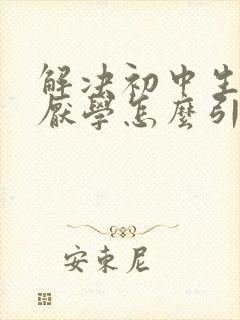 解决初中生
厌學怎麼引
安東尼